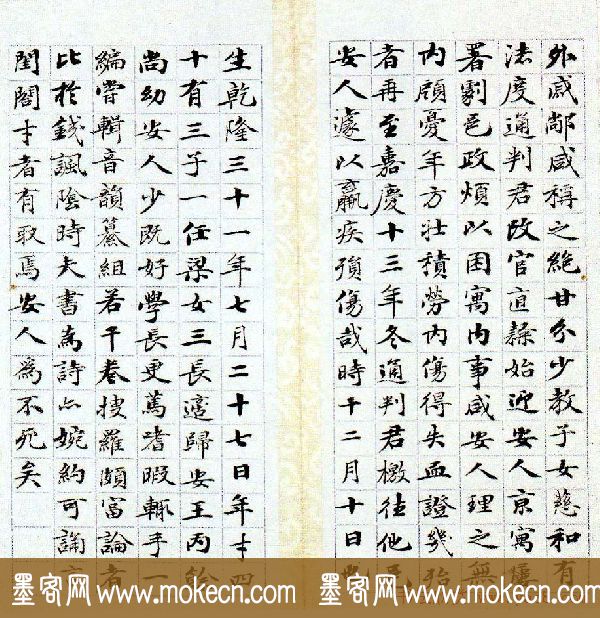 外戚鄰咸稱之絕甘分少教子女慈和有
法度通判君改官直隸始迎安人京寓屢
署劇邑政煩以困寓內事咸安人理之無
內顧憂年方壯積勞內傷得失血證幾殆
者再至嘉慶十三年冬通判君檄往他
安人遽以羸疾殞傷哉時十二月十日
生乾隆三十一年七月二十七日年才四
十有三子一任梁女三長適歸安王丙幹
尚幼安人少既好學長更篤嗜暇輒手一
編嘗輯音韻纂組若干卷搜羅頗富論者
比於錢諷陰時夫書為詩亦婉約可誦言
閨閤才者有取焉安人為不死矣
墨客网 www.mokecn.com 墨客网 www.mokecn.com